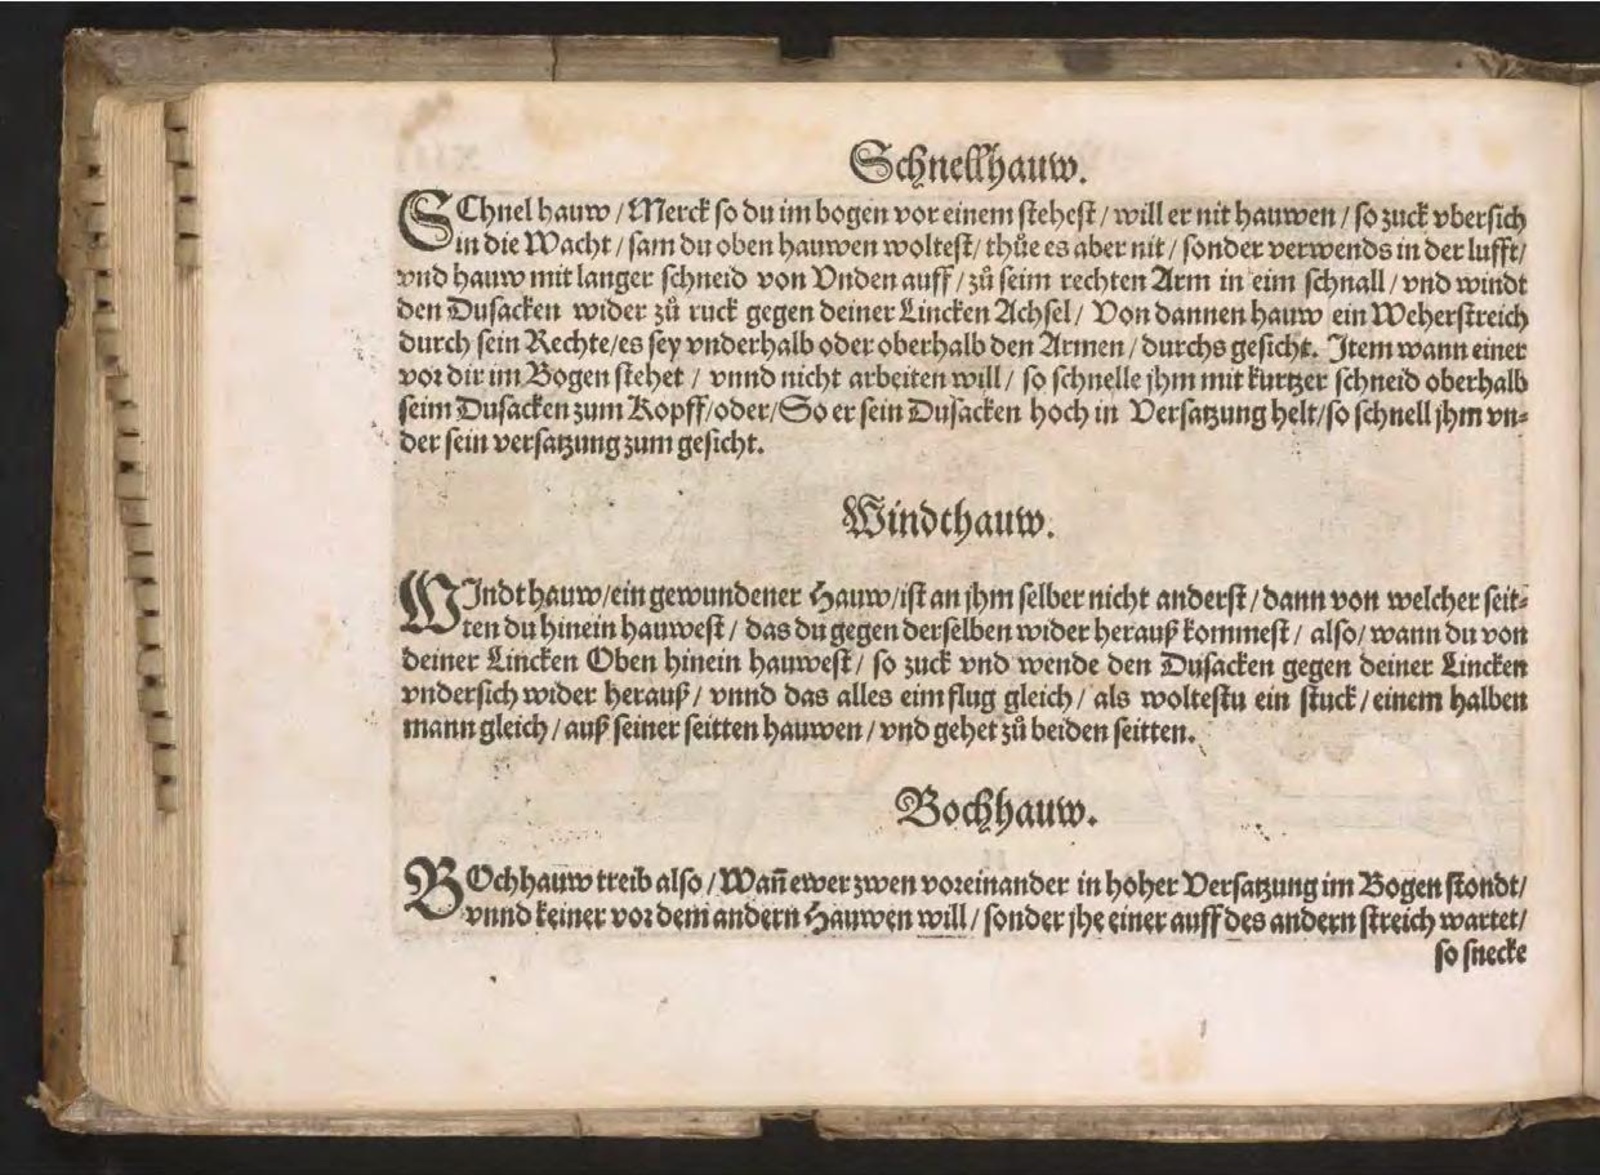 Schnellhauw.
SChnel hauw / Merck so du im bogen vor einem stehest / will er nit hauwen / so zuck vbersich
in die Wacht / sam du oben hauwen woltest / thůe es aber nit / sonder verwends in der lufft /
vnd hauw mit langer schneid von Vnden auff / zů seim rechten Arm in eim schnall / vnd windt
den Dusacken wider zů ruck gegen deiner Lincken Achsel / Von dannen hauw ein Weherstreich
durch sein Rechte / es sey vnderhalb oder oberhalb den Armen / durchs gesicht. Item wann einer
vor dir im Bogen stehet / vnnd nicht arbeiten will / so schnelle jhm mit kurtzer schneid oberhalb
seim Dusacken zum Kopff / oder / So er sein Dusacken hoch in Versatzung helt / so schnell jhm vn-
der sein versatzung zum gesicht.
Windthauw.
WIndthauw / ein gewundener Hauw / ist an jhm selber nicht anderst / dann von welcher seit-
ten du hinein hauwest / das du gegen derselben wider herauß kommest / also / wann du von
deiner Lincken Oben hinein hauwest / so zuck vnd wende den Dusacken gegen deiner Lincken
vndersich wider herauß / vnnd das alles eim flug gleich / als woltestu ein stuck / einem halben
mann gleich / auß seiner seitten hauwen / vnd gehet zů beiden seitten.
Bochhauw.
BOchhauw treib also / Wañ ewer zwen vor einander in hoher Versatzung im Bogen stondt /
vnnd keiner vor dem andern Hauwen will / sonder jhe einer auff des andern streich wartet /
so snecke